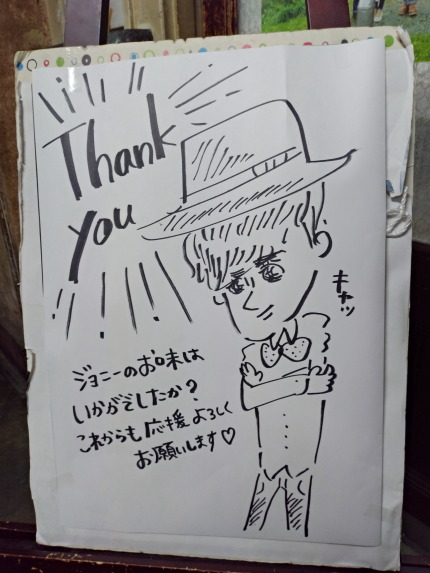 Thank
you
キャッ
ジョニーのお味は
いかがでしたか?
これからも応援よろしく
お願いします♡